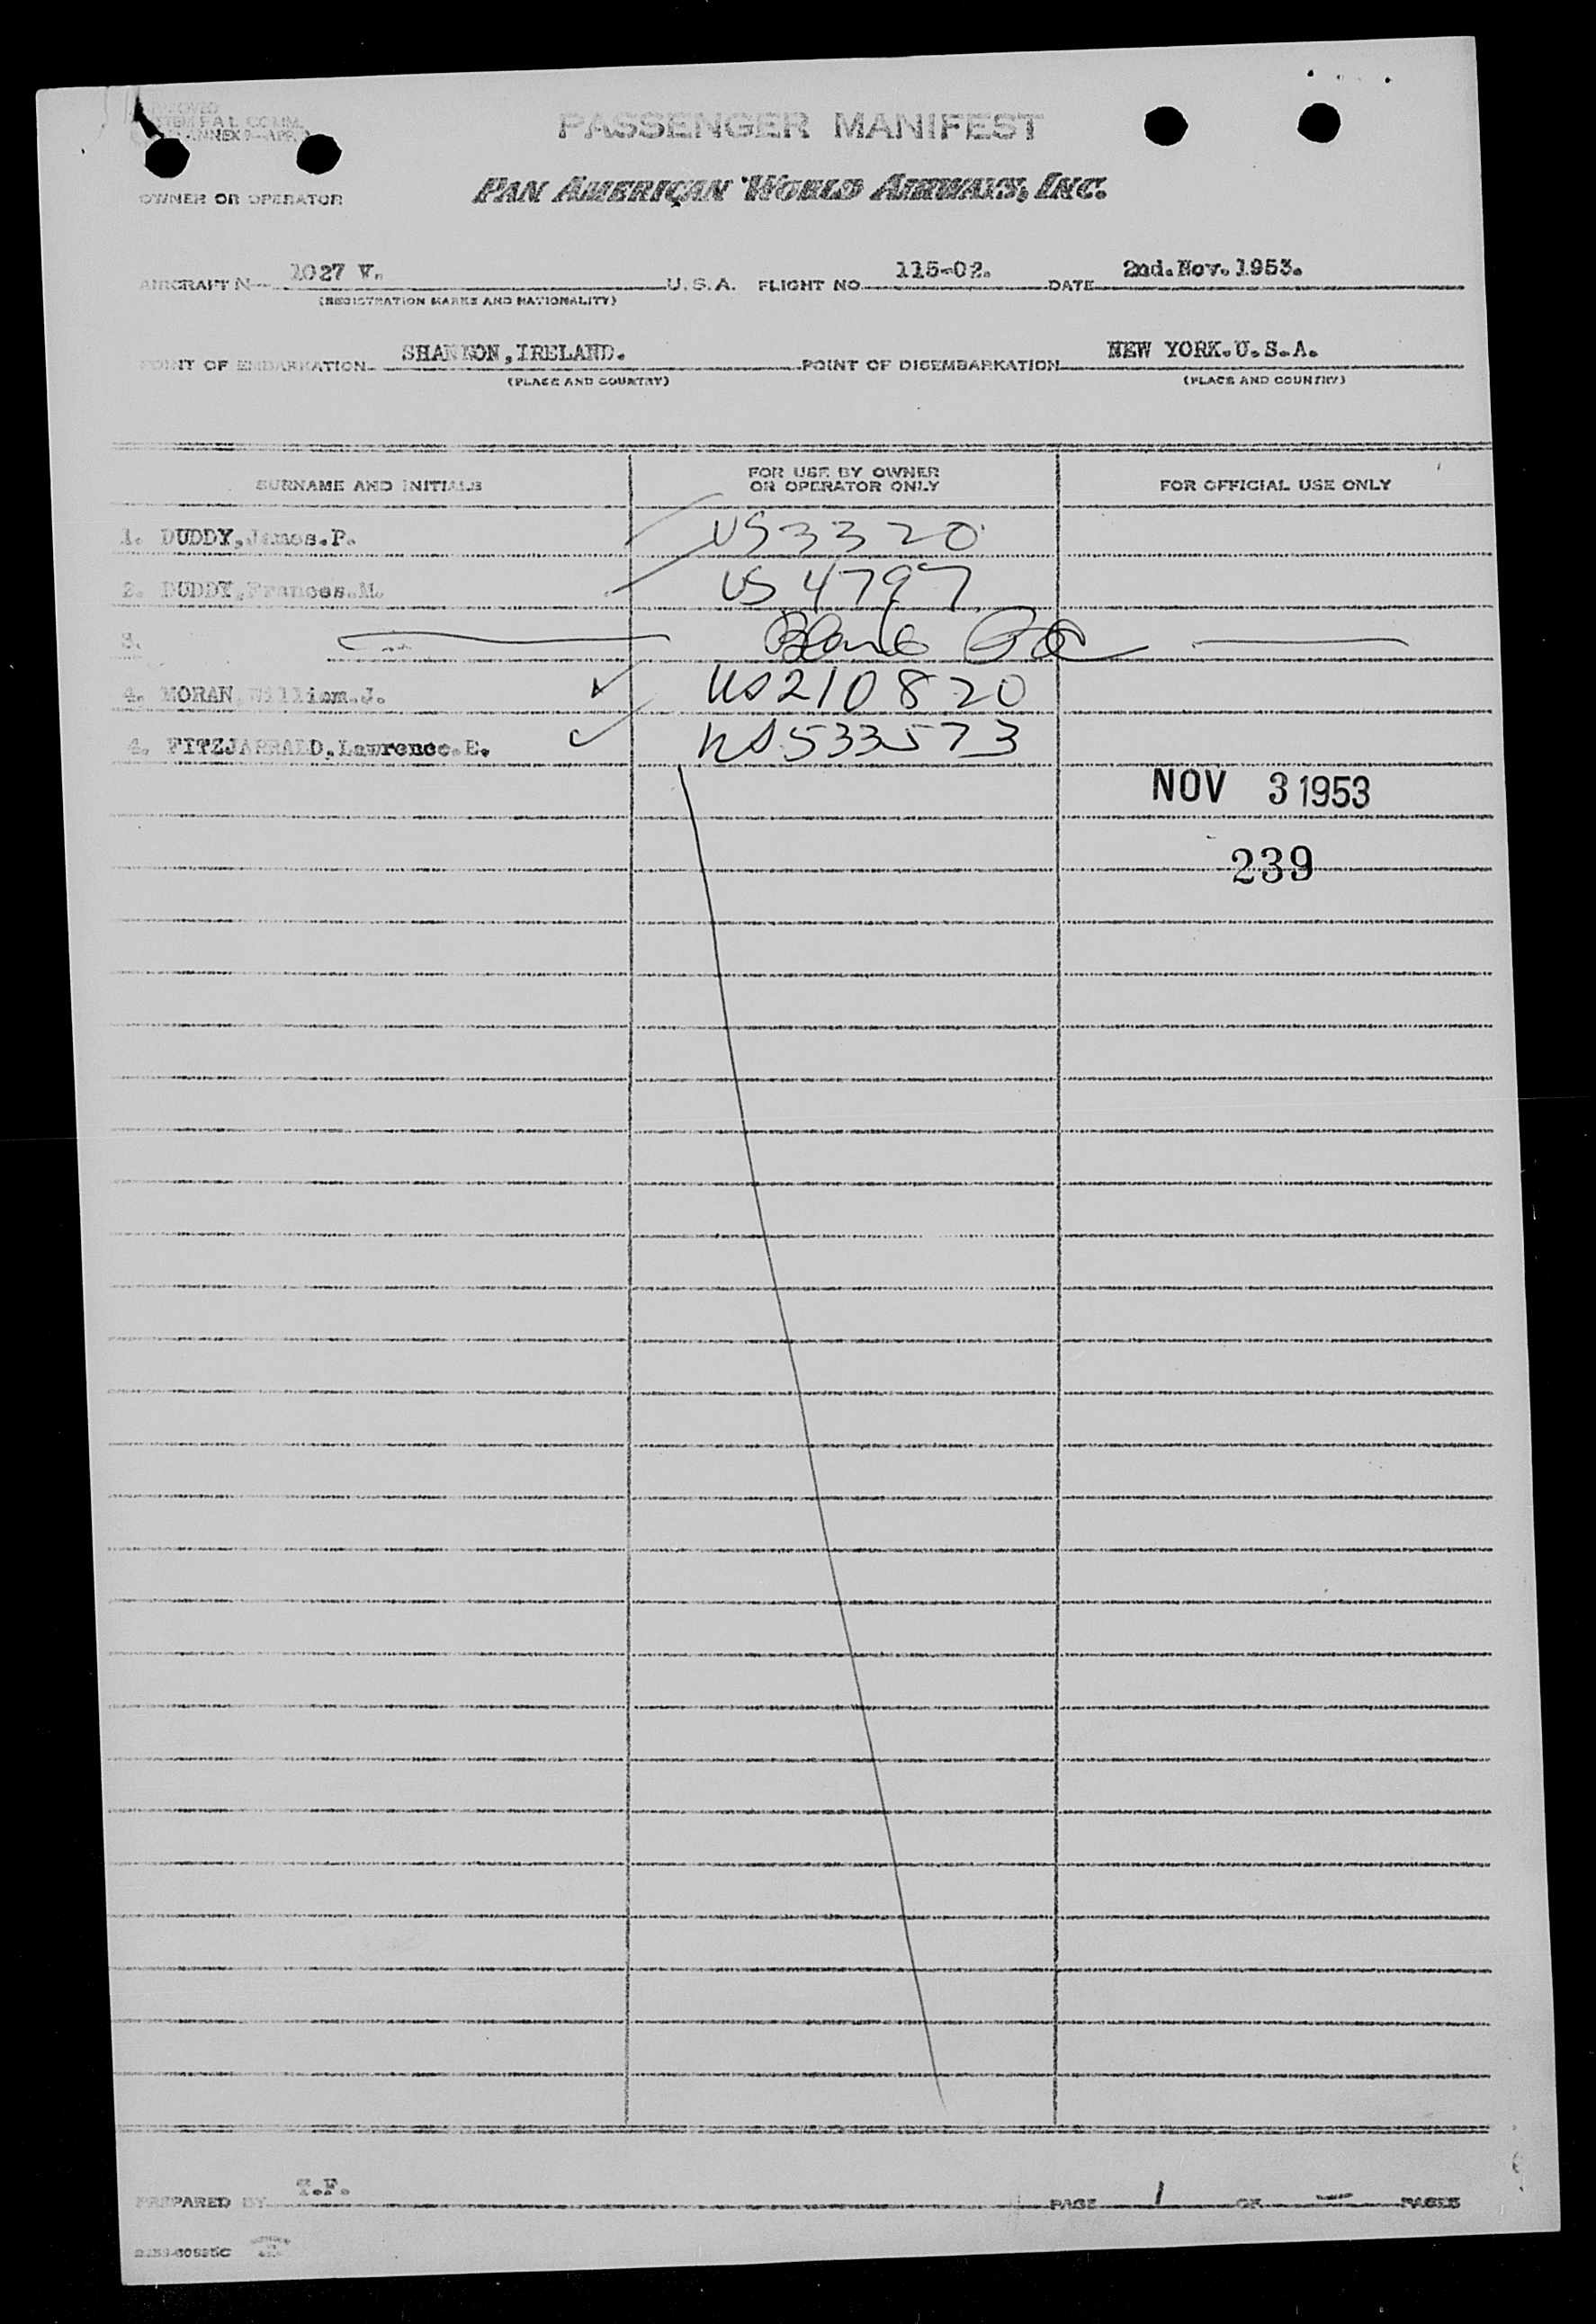 PASSENGER MANIFEST
OWNER OR OPERATOR PAN AMERICAN WORLD AIRWAYS, INC.
AIRCRAFT N- 1027 V. U.S.A. FLIGHT NO. 115-02. DATE 2nd.Nov.1953.
(REGISTRATION MARKS AND NATIONALITY)
POINT OF EMBARKATION SHANNON,IRELAND. POINT OF DISEMBARKATION NEW YORK.U.S.A.
(PLACE AND COUNTRY) (PLACE AND COUNTRY)
SURNAME AND INITIALS FOR USE BY OWNER OR OPERATOR ONLY FOR OFFICIAL USE ONLY
1. DUDDY,James.P. US3320
2. DUDDY,Frances.M. US 4797
3. Blank
4. MORAN William.J. US210820
4. FITZJARRALD,Lawrence.E. US533573
NOV 3 1953
239
PREPARED BY T.F. PAGE 1 OF PAGES